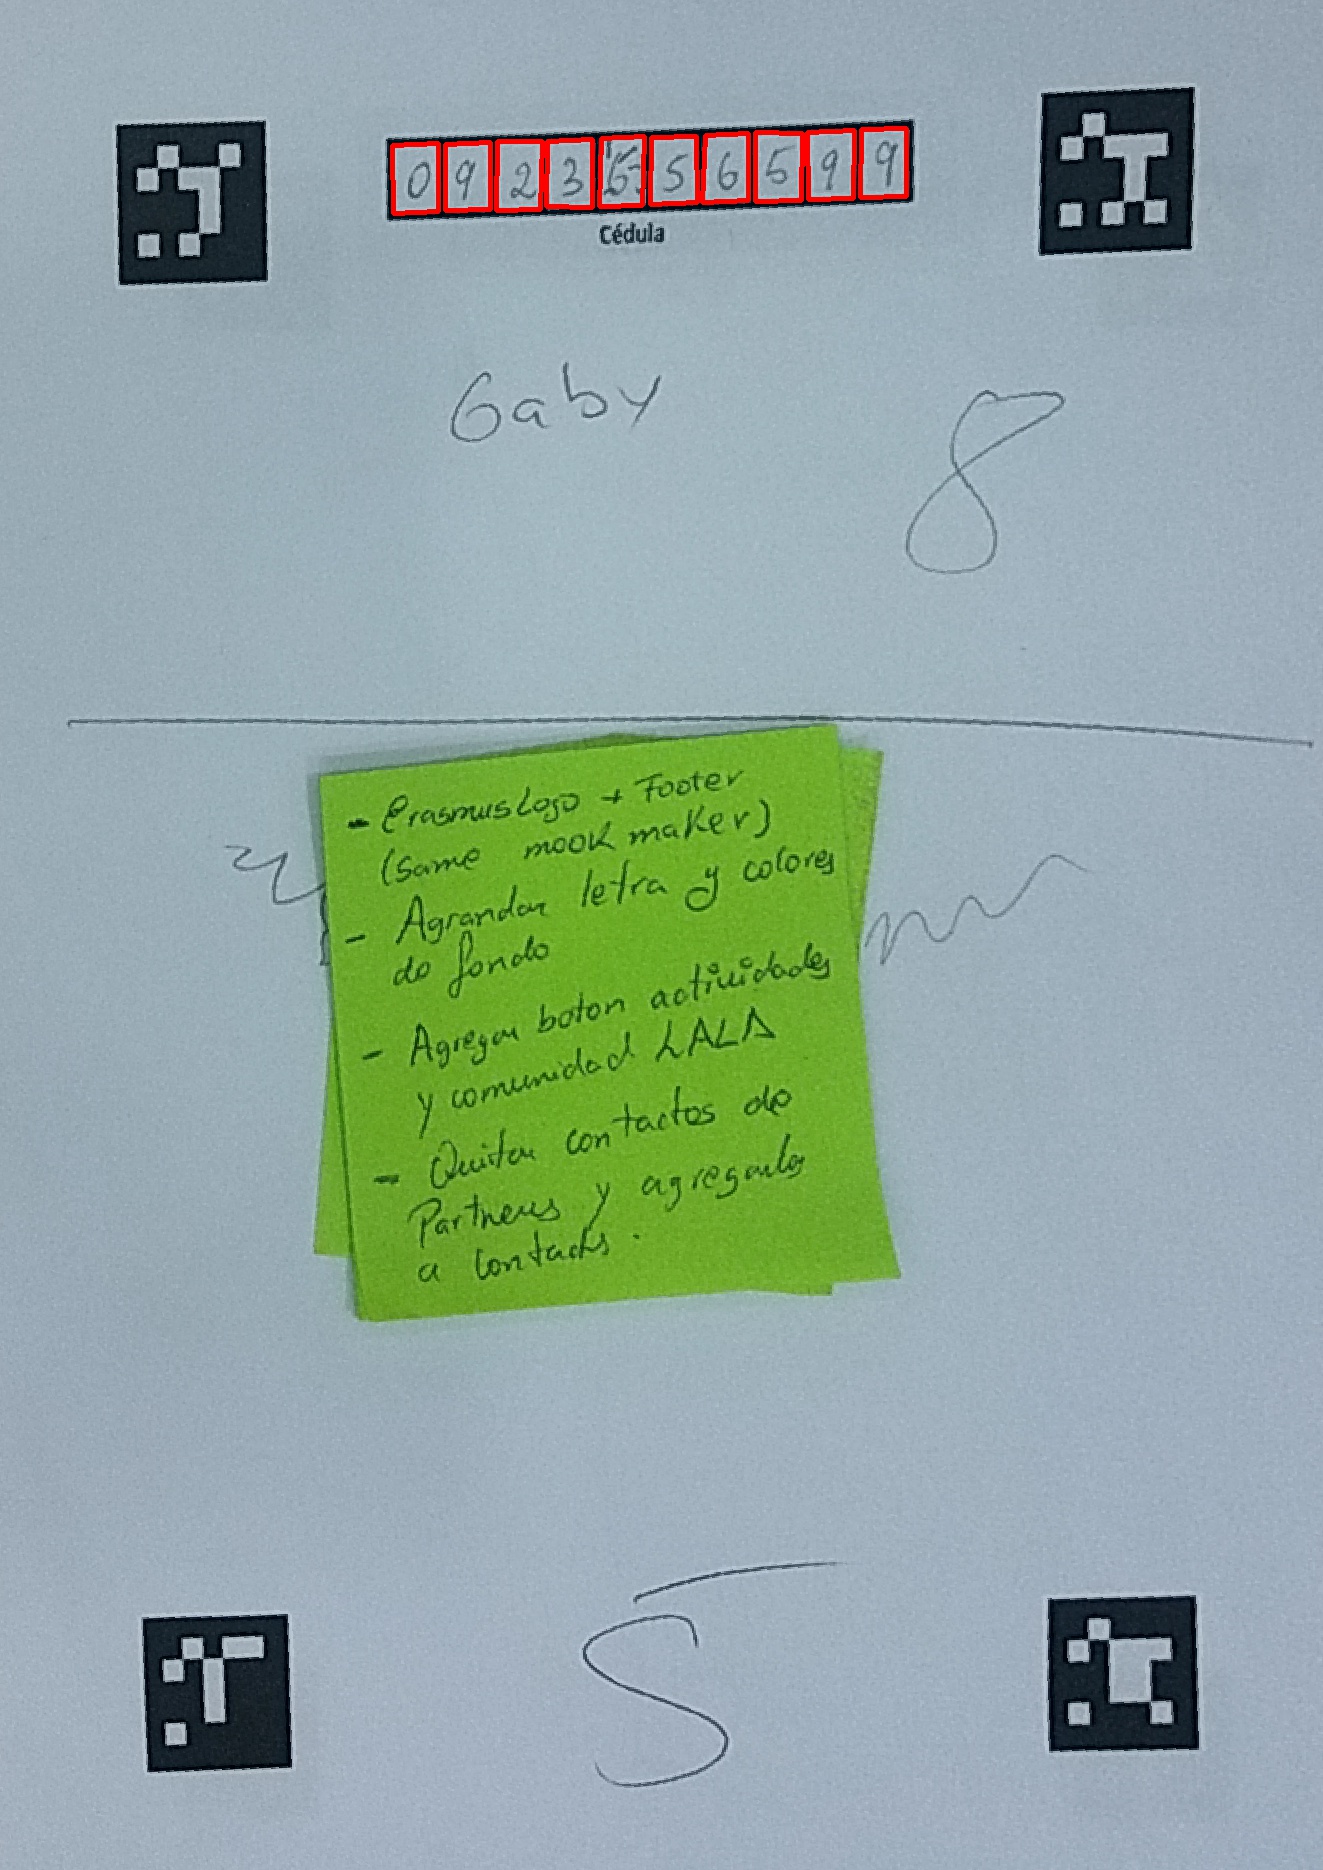 0 9 2 3 5 6 5 9 9
Cédula
Gaby
8
- Erasmus Logo + Footer
(Same mook maker)
- Agrandar letra y colores
de fondo
- Agregar boton actividades
y comunidad LALA
- Quitar contactos de
Partners y agregarlos
a contacts.
5